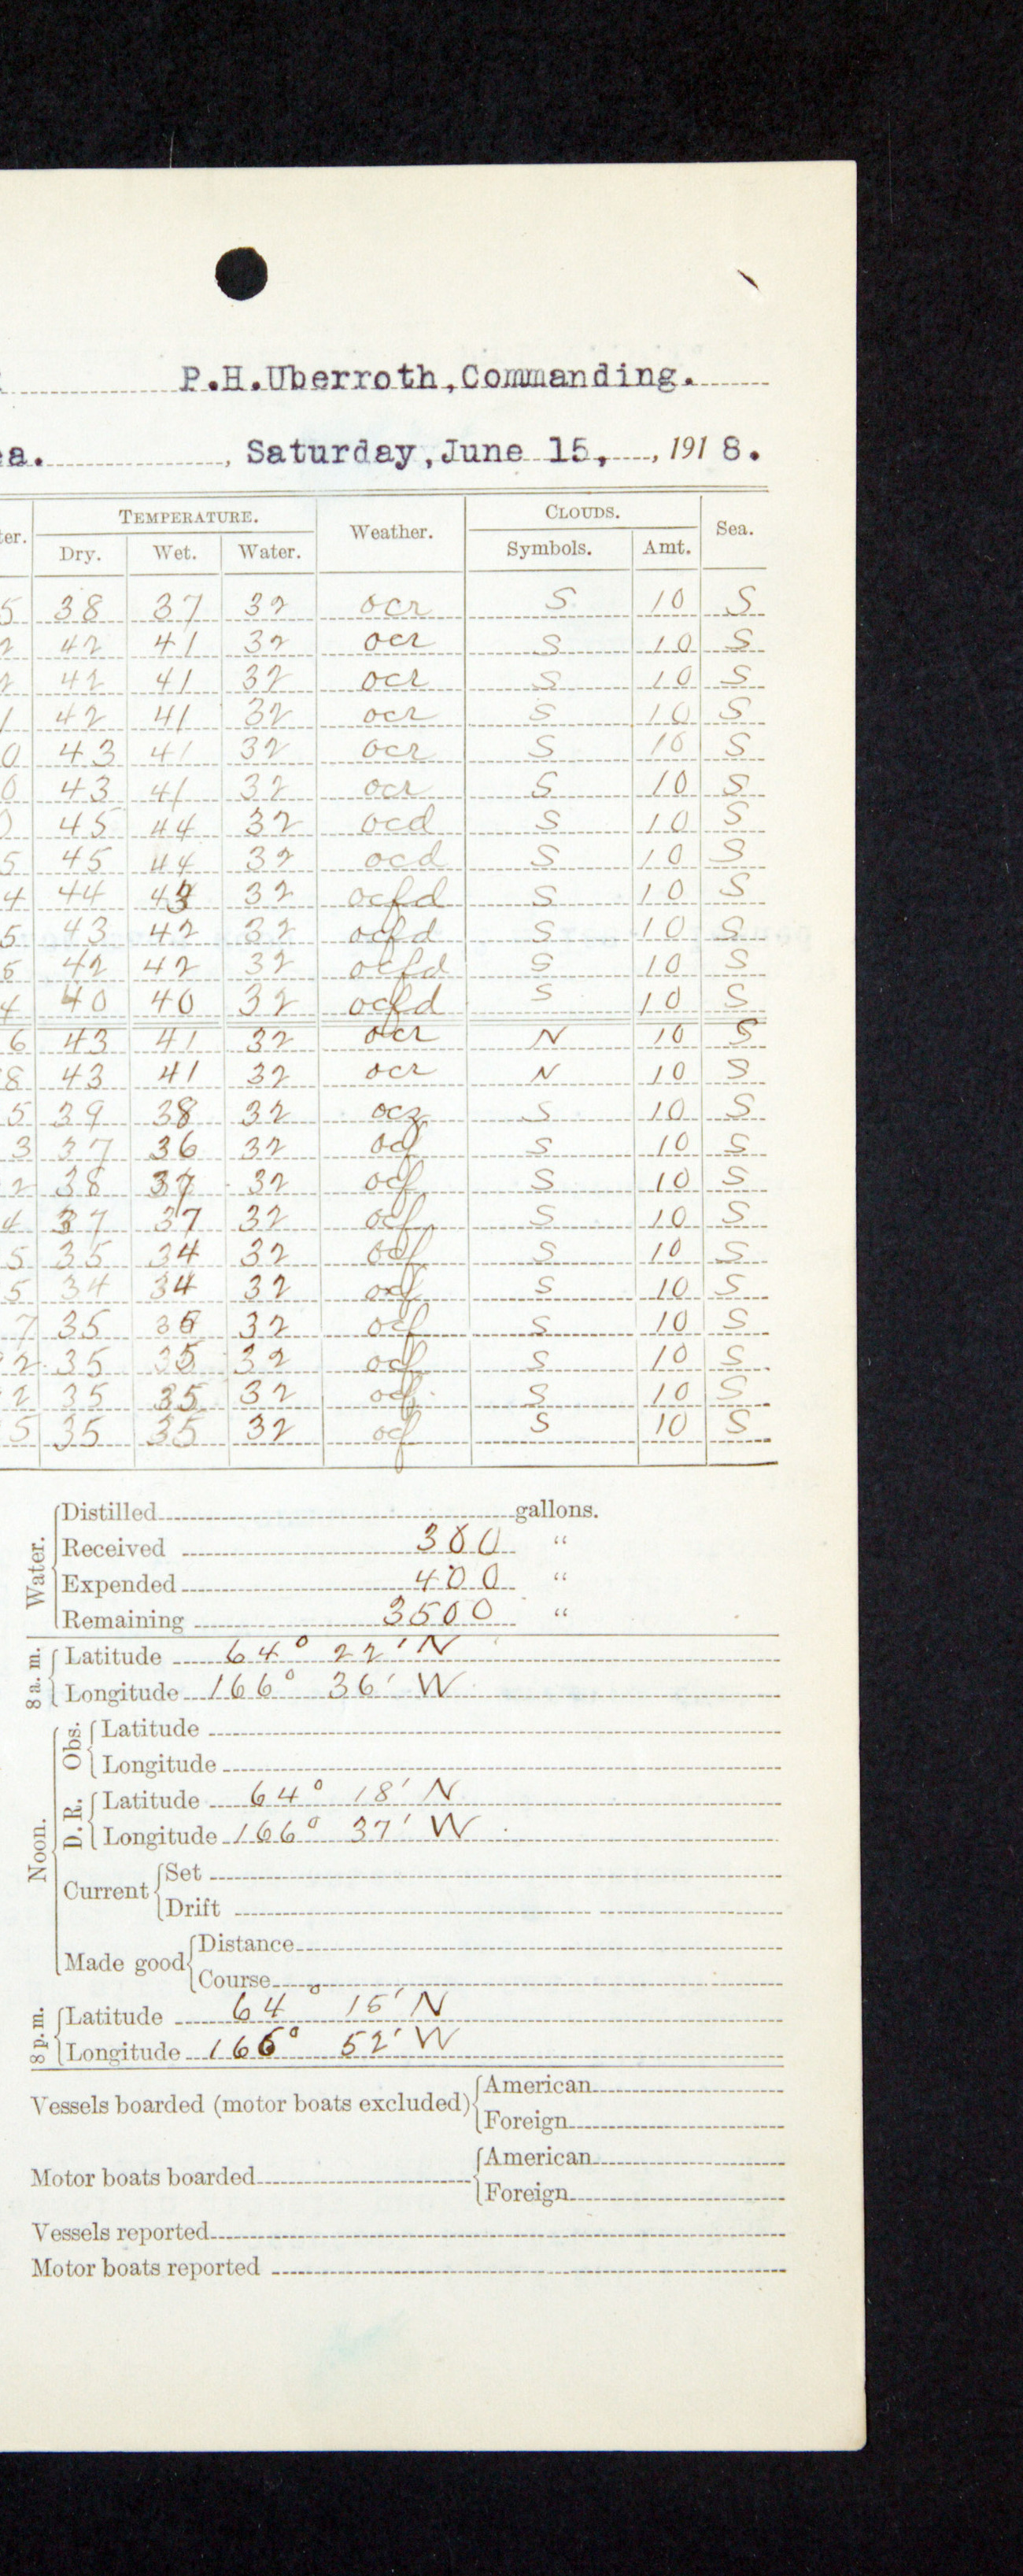 P.H.Uberroth,Commanding.
ea. , Saturday, June 15, , 191 8.
ter. TEMPERATURE. Weather. CLOUDS. Sea.
Dry. Wet. Water. Symbols. Amt.
5 38 37 32 ocr S 10 S
2 42 41 32 ocr S 10 S
2 42 41 32 ocr S 10 S
1 42 41 32 ocr S 10 S
0 43 41 32 ocr S 10 S
0 43 41 32 ocr S 10 S
0 45 44 32 ocd S 10 S
5 45 44 32 ocd S 10 S
4 44 43 32 ocfd S 10 S
5 43 42 32 ocfd S 10 S
5 42 42 32 ocfd S 10 S
4 40 40 32 ocfd S 10 S
6 43 41 32 ocr N 10 S
8 43 41 32 ocr N 10 S
5 39 38 32 ocz S 10 S
3 37 36 32 ocf S 10 S
2 38 37 32 ocf S 10 S
4 37 37 32 ocf S 10 S
5 35 34 32 ocf S 10 S
5 34 34 32 ocf S 10 S
7 35 32 ocf S 10 S
2 35 35 32 ocf S 10 S
2 35 35 32 ocf S 10 S
5 35 35 32 ocf S 10 S
Water.
Distilled gallons.
Received 300 "
Expended 400 "
Remaining 3500 "
8 a. m.
Latitude 64° 22' N
Longitude 166° 36' W
Noon.
Obs.
Latitude
Longitude
D. R.
Latitude 64° 18' N
Longitude 166° 37' W
Current
Set
Drift
Made good
Distance
Course
8 p. m.
Latitude 64° 15' N
Longitude 166° 52' W
Vessels boarded (motor boats excluded)
American
Foreign
Motor boats boarded
American
Foreign
Vessels reported
Motor boats reported